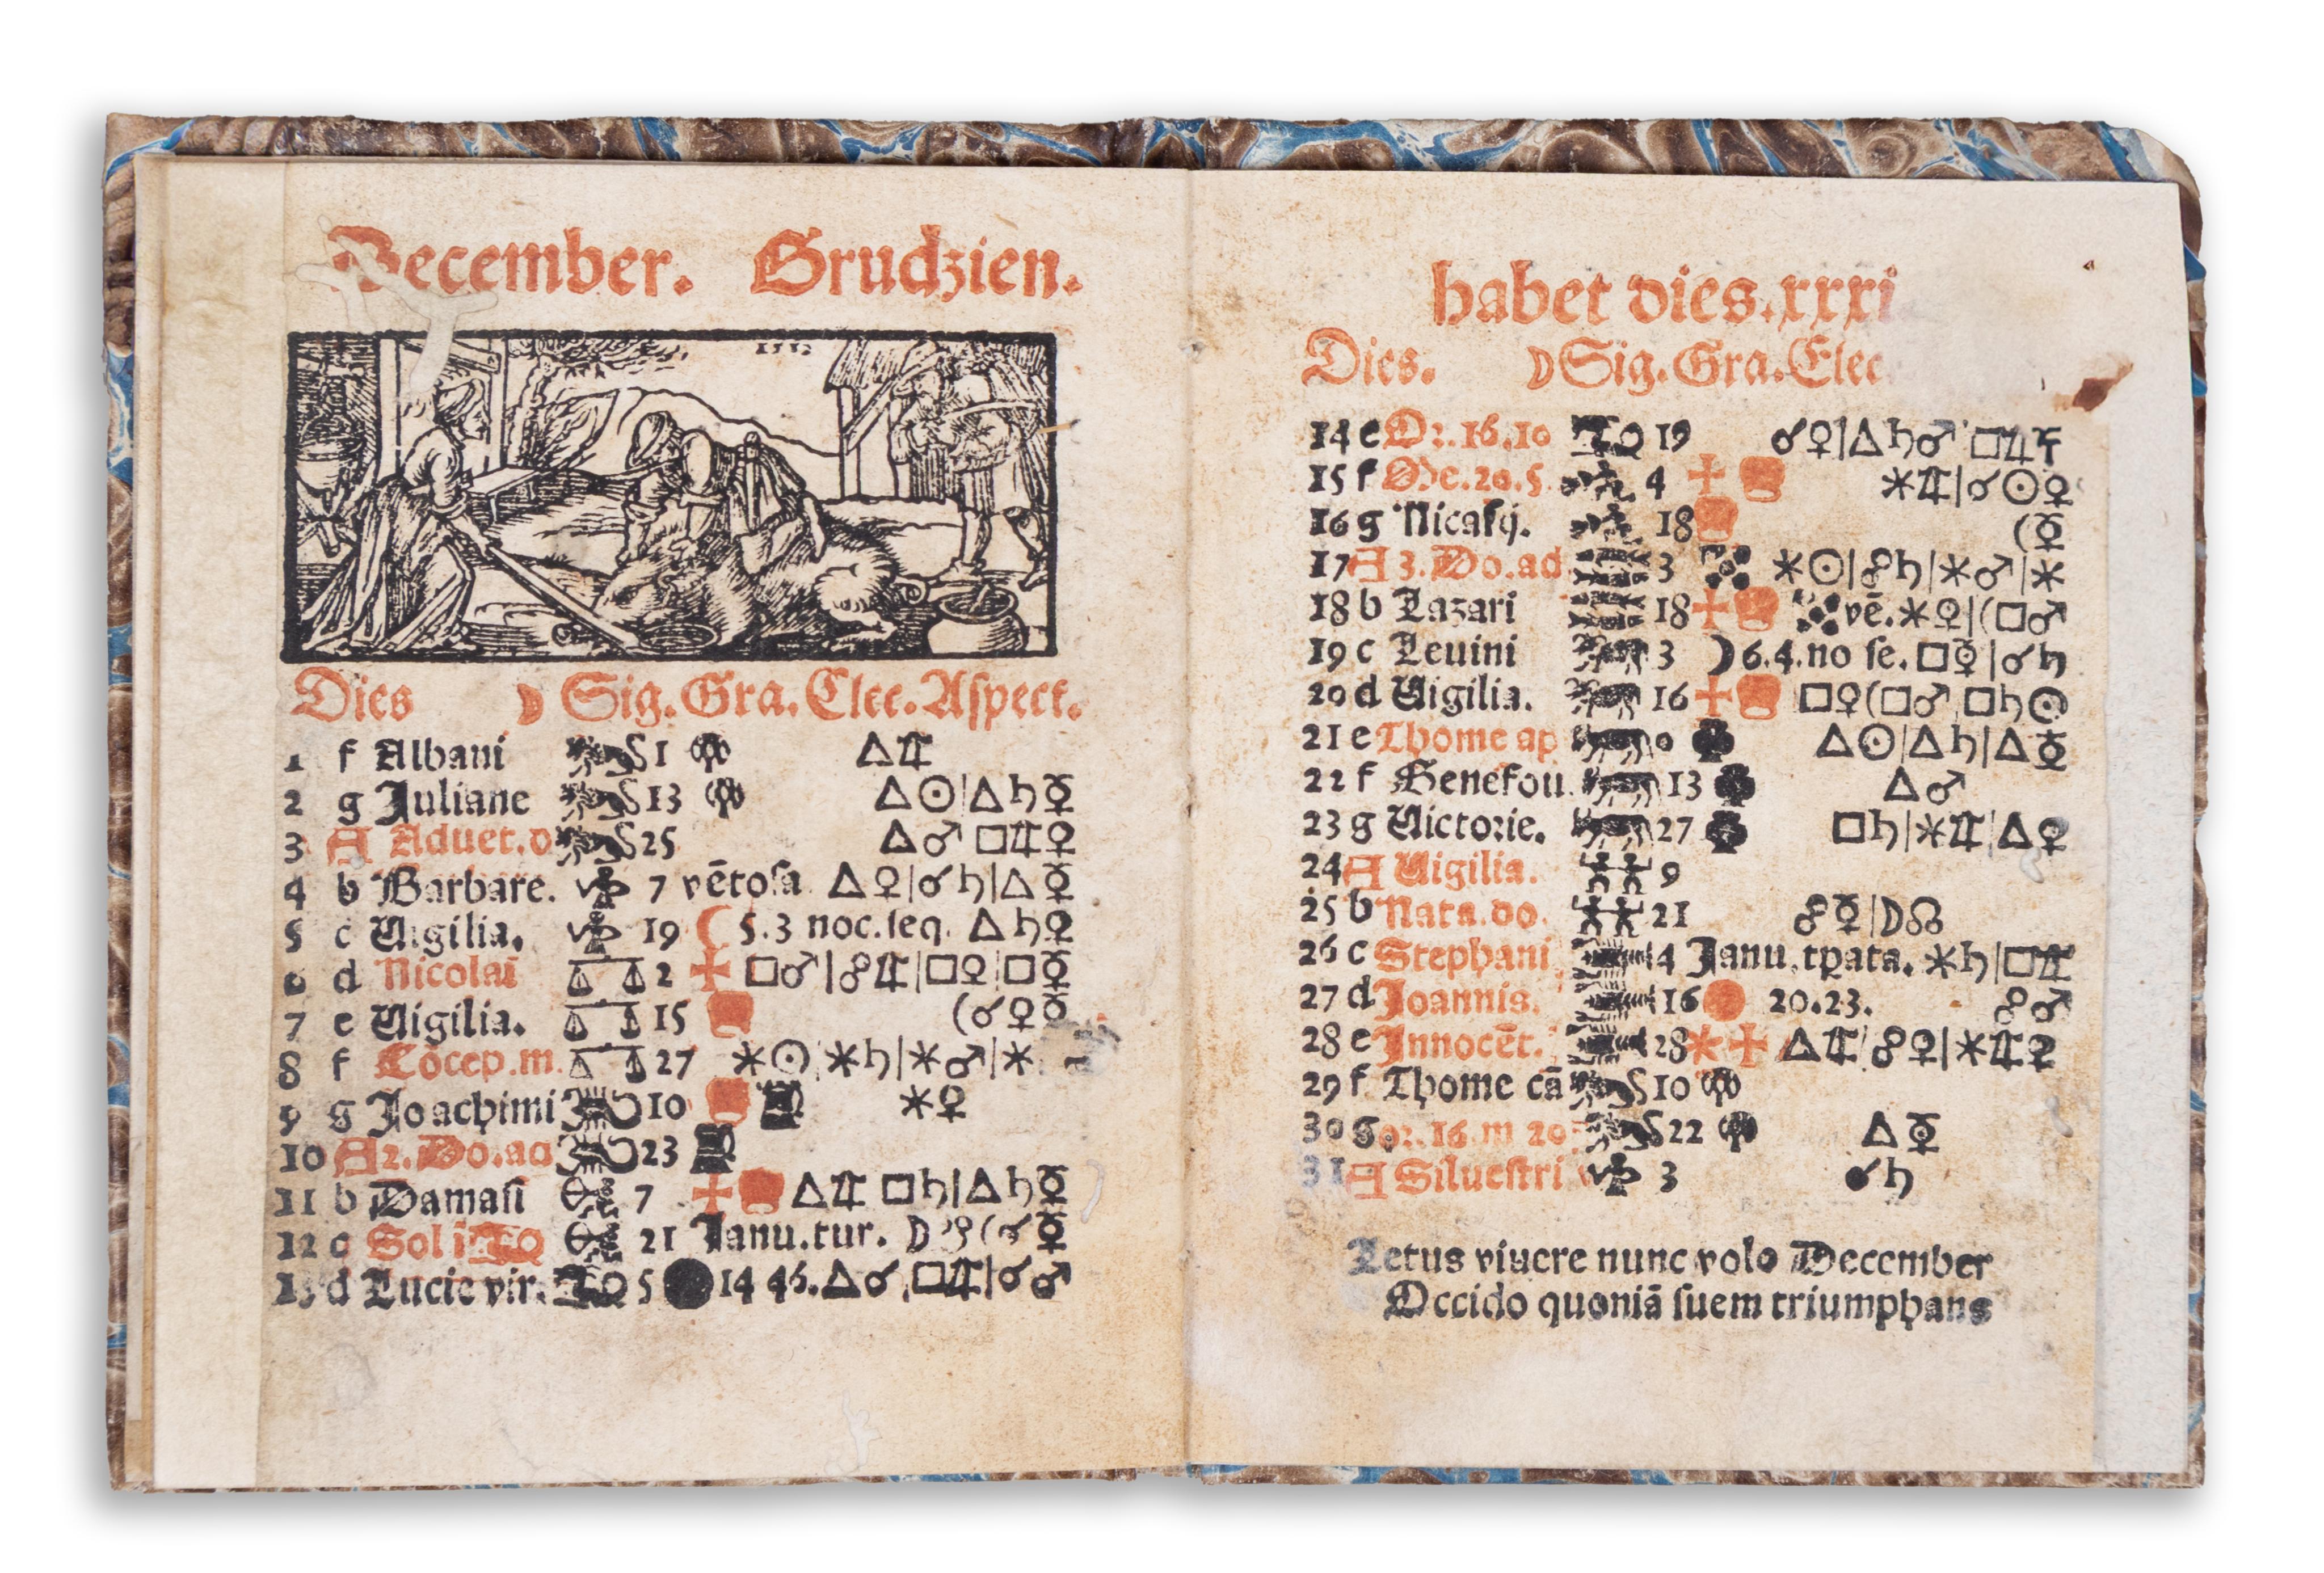 December. Grudzien.
1532
Dies ☽ Sig. Gra. Elec. Aspect.
1 f Albani 1 △♃
2 g Juliane 13 △☉|△♄☿
3 A Aduēt. d 25 △♂ □♃♀
4 b Barbare. 7 vētosa △♀|☌♄|△☿
5 c Uigilia. 19 ☾ 5.3 noc.seq. △♄♀
6 d Nicolai 2 ✚ □♂|☍♃|□♀|□☿
7 e Uigilia. 15 (☌♀☿
8 f Cōcep.m. 27 ✶☉ ✶♄|✶♂|✶
9 g Joachimi 10 ✶♀
10 A 2. Do. ad 23
11 b Damasi 7 ✚ △♃ □♄|△♄☿
12 c Sol i ♑ 21 Janu.tur. ☽ (☌☿
13 d Lucie vir. 5 ● 14 46. △☌ □♃|☌♂
habet dies. xxxi
Dies. ☽ Sig. Gra. Elec
14 e Or. 16.10 19 ☌♀|△♄♂ □♃
15 f Oc. 20.5. 4 ✚ ✶♃|☌☉♀
16 g Nicasij. 18 (☿
17 A 3. Do. ad 3 ✶☉|☍♄|✶♂|✶
18 b Lazari 18 ✚ vē. ✶♀|(□♂
19 c Leuini 3 ☽ 6.4. no se. □☿|☌♄
20 d Uigilia. 16 ✚ □♀(□♂ □♄☉
21 e Thome ap 0 △☉|△♄|△☿
22 f Genefou. 13 △♂
23 g Uictorie. 27 □♄|✶♃|△♀
24 A Uigilia. 9
25 b Nata. do. 21 ☍☿|☽☊
26 c Stephani 4 Janu. tpata. ✶♄|□♃
27 d Joannis. 16 20.23. ☍♂
28 e Innocēt. 28 ✶✚ △♃|☍♀|✶♃♀
29 f Thome cā 10
30 g or. 16 m 20 22 △☿
31 A Siluestri 3 ☌♄
Letus viuere nunc volo December
Occido quoniā suem triumphans